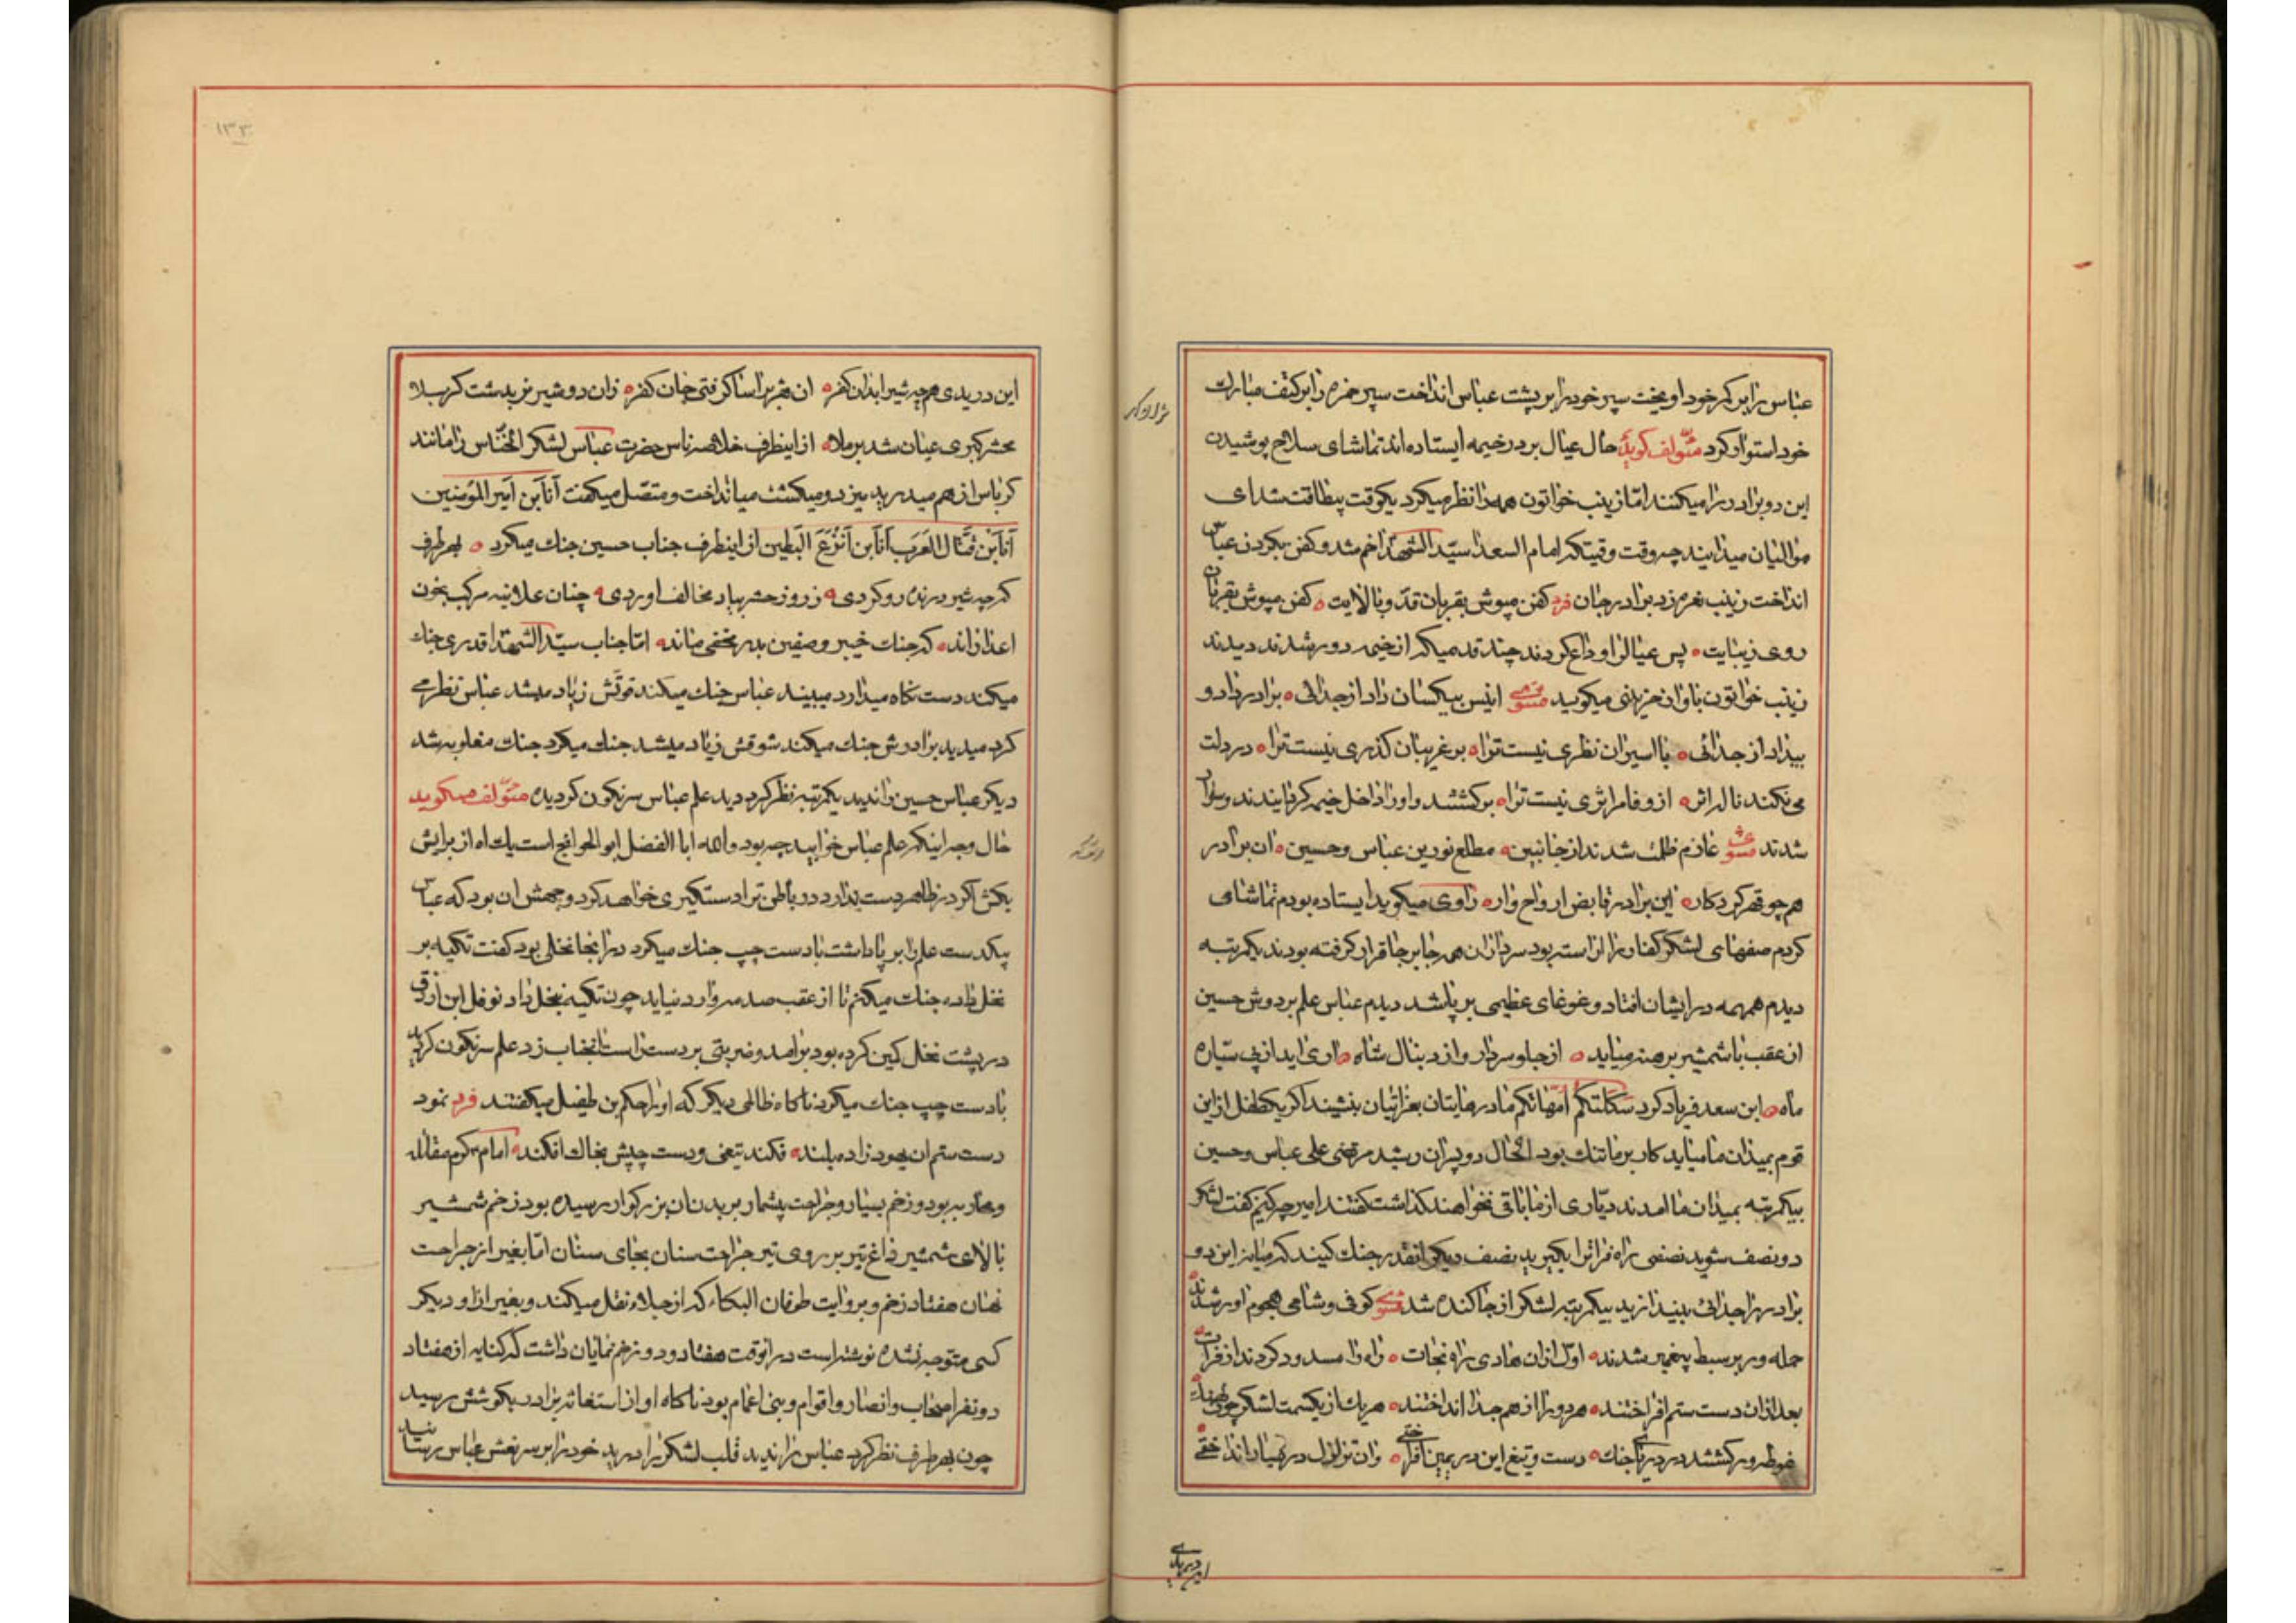 عباس را بر کمر خود اویخت سپر خود را بر پشت عباس انداخت سپر حمزه را بر کتف مبارک
خود استوار کرد مؤلف کوید حال عیال بر در خیمه ایستاده اند تماشای سلاح پوشیدن
این دو برادر را میکنند اما زینب خواتون همه را نظر میکرد یکوقت بیطاقت شد ای
موالیان میدانید چه وقت وقتیکه امام السعدا سید الشهدا خم شد و کفن بکردن عباس
انداخت زینب نعره زد برادر جان فرد کفن مپوش بقربان قد و بالایت کفن مپوش بقربان
روی زیبایت پس عیالرا وداع کردند چند قدمیکه از خیمه دور شدند دیدند
زینب خواتون باواز حزینی میکوید مثنوی انیس بیکسان داد از جدائی برادر داد و
بیداد از جدائی با اسیران نظری نیست ترا بر غریبان کذری نیست ترا در دلت
می نکند ناله اثر از وفا اثری نیست ترا برکشتند و او را داخل خیمه کردانیدند و سوار
شدند مثنوی عازم ظلمت شدند از جانبین مطلع نورین عباس و حسین ان برادر
هم چو قهر کردکار این برادر قابض ارواح وار راوی میکوید ایستاده بودم تماشای
کردم صفهای لشکر کفار اراسته بود سرداران همه جا بر جا قرار کرفته بودند یکمرتبه
دیدم همهمه در ایشان افتاد و غوغای عظیمی بر پا شد دیدم عباس علم بر دوش حسین
از عقب با شمشیر برهنه میاید از جلو سردار و از دنبال شاه اری اید از پی سیاره
ماه ابن سعد فریاد کرد ثکلتکم امهاتکم مادرهایتان بعزایتان بنشیند اکر یکطفل از این
قوم بمیدان ما میاید کار بر ما تنک بود الحال دو پسران رشید مرتضی علی عباس و حسین
بیکمرتبه بمیدان ما امدند دیاری از ما باقی نخواهند کذاشت کفتند امیر چه کنیم کفت لشکر
دو نصف شوید نصفی راه فراترا بکیرید نصف دیکر انقدر جنک کنید که میانه این دو
برادر را جدائی بیندازید بیکمرتبه لشکر از جا کنده شد مثنوی کوفی و شامی هجوم اور شدند
حمله ور بر سبط پیغمبر شدند اول از ان هادی راه نجات راه را مسدود کردند از فرات
بعد از ان دست ستم افراختند هر دو را از هم جدا انداختند هر یک از یکسمت لشکر چون نهنک
غوطه ور کشتند در دریای جنک دست و تیغ این در یمین افراختی وان تزلزل در یسار انداختی
این دریدی
این دریدی هم چه شیر ابدان کفر ان هژبر اسا کرفتی جان کفر زان دو شیر نر بدشت کربلا
محشر کبری عیان شد بر ملا از اینطرف خلاصه ناس حضرت عباس لشکر الخناس را مانند
کرباس از هم میدرید میزد و میکشت میانداخت و متصل میکفت اَنَا ابن امیر المؤمنین
اَنَا ابن قتال العرب اَنَا ابن اَنزع البطین از اینطرف جناب حسین جنک میکرد بهر طرف
که چه شیر درنده رو کردی ز روز حشر بیاد مخالف اوردی چنان علانیه مرکب بخون
اعدا راند که جنک خیبر و صفین بدر مخفی ماند اما جناب سید الشهدا قدری جنک
میکند دست نکاه میدارد میبیند عباس جنک میکند قوتش زیاد میشد عباس نظر می
کرد میدید برادرش جنک میکند شوقش زیاد میشد جنک میکرد جنک مغلوبه شد
دیکر عباس حسین را ندید یکمرتبه نظر کرد دید علم عباس سرنکون کردیده مؤلف میکوید
حال وجه اینکه علم عباس خوابید چه بود والله ابا الفضل ابو الحوائج است یک اه از برایش
بکش اکر در ظاهر دست ندارد در باطن ترا دستکیری خواهد کرد وجهش ان بود که عباس
بیکدست علم را بر پا داشت با دست چپ جنک میکرد در انجا نخلی بود کفت تکیه بر
نخل داده جنک میکنم تا از عقب صدمه وارد نیاید چون تکیه بنخل داد نوفل ابن ازرق
در پشت نخل کمین کرده بود برامد و ضربتی بر دست راست انجناب زد علم سرنکون کردید
با دست چپ جنک میکرد ناکاه ظالمی دیکر که او را حکم بن طفیل میکفتند فرد نمود
دست ستم ان یهود زاده بلند فکند تیغی و دست چپش بخاک افکند امام کرم مقاتله
و محاربه بود و زخم بسیار و جراحت بیشمار بر بدن ان بزرکوار رسیده بود زخم شمشیر
بالای شمشیر داغ تیر بر روی تیر جراحت سنان بجای سنان اما بغیر از جراحت
نهان هفتاد زخم و بروایت طوفان البکاء که از جلاء نقل میکند و بغیر از او دیکر
کسی متوجه نشده نوشته است در انوقت هفتاد و دو زخم نمایان داشت که کنایه از هفتاد
دو نفر اصحاب و انصار و اقوام و بنی اعمام بود ناکاه اواز استغاثه برادر بکوشش رسید
چون بهر طرف نظر کرد عباس را ندید قلب لشکر را درید خود را بر سر نعش عباس رسانید